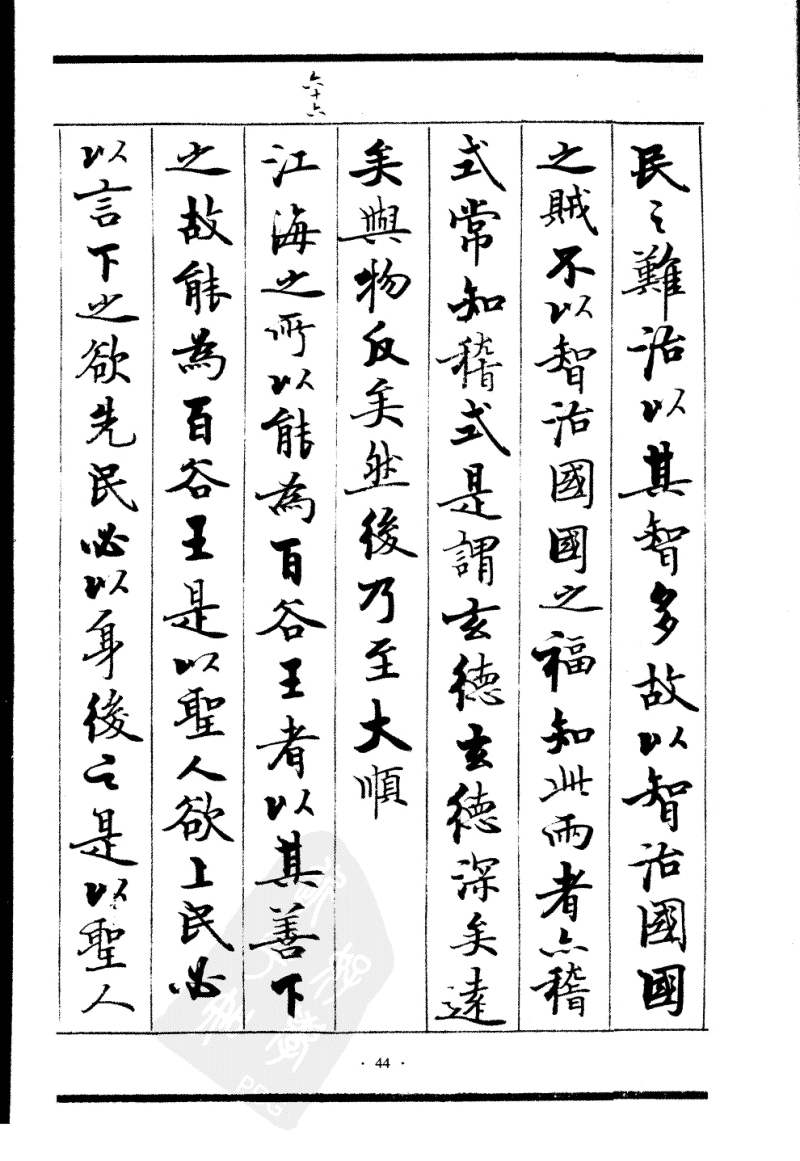 六十六
民之難治以其智多故以智治國國
之賊不以智治國國之福知此兩者亦稽
式常知稽式是謂玄德玄德深矣遠
矣與物反矣然後乃至大順
江海之所以能為百谷王者以其善下
之故能為百谷王是以聖人欲上民必
以言下之欲先民必以身後之是以聖人
· 44 ·